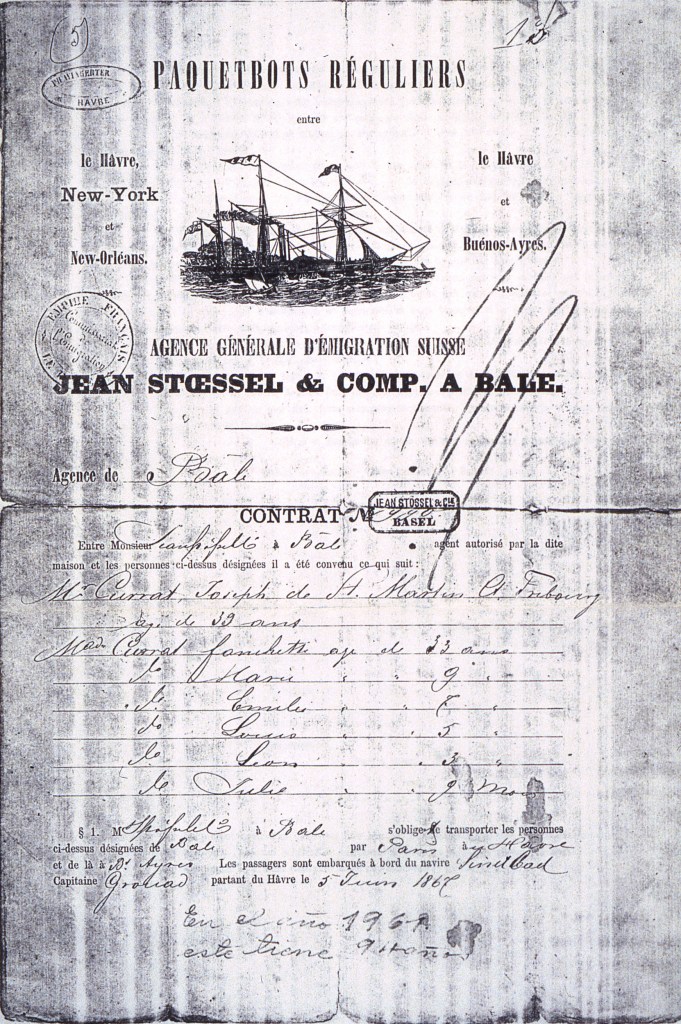 5
HAVRE
PAQUETBOTS RÉGULIERS
entre
le Hâvre,
New-York
et
New-Orléans.
le Hâvre
et
Buénos-Ayres.
EMPIRE FRANÇAIS
AGENCE GÉNÉRALE D'ÉMIGRATION SUISSE
JEAN STŒSSEL & COMP. A BALE.
Agence de Bâle
CONTRAT No
JEAN STÖSSEL & Cie
BASEL
Entre Monsieur à Bâle agent autorisé par la dite
maison et les personnes ci-dessus désignées il a été convenu ce qui suit:
Mr Currat, Joseph de St. Martin Ct. Fribourg
agé de 39 ans
Made Currat fanchette age de 33 ans
de Marie " " 9 "
de Emilie " " 7 "
do Louis " " 5 "
de Leon " " 3 "
de Julie " " 9 Mois
§ 1. Mr à Bâle s'oblige de transporter les personnes
ci-dessus désignées de Bâle par Paris à Havre
et de là à Bs Ayres Les passagers sont embarqués à bord du navire Sindbad
Capitaine partant du Hâvre le 5 Juin 1867
En el año 1961
este tiene 94 años